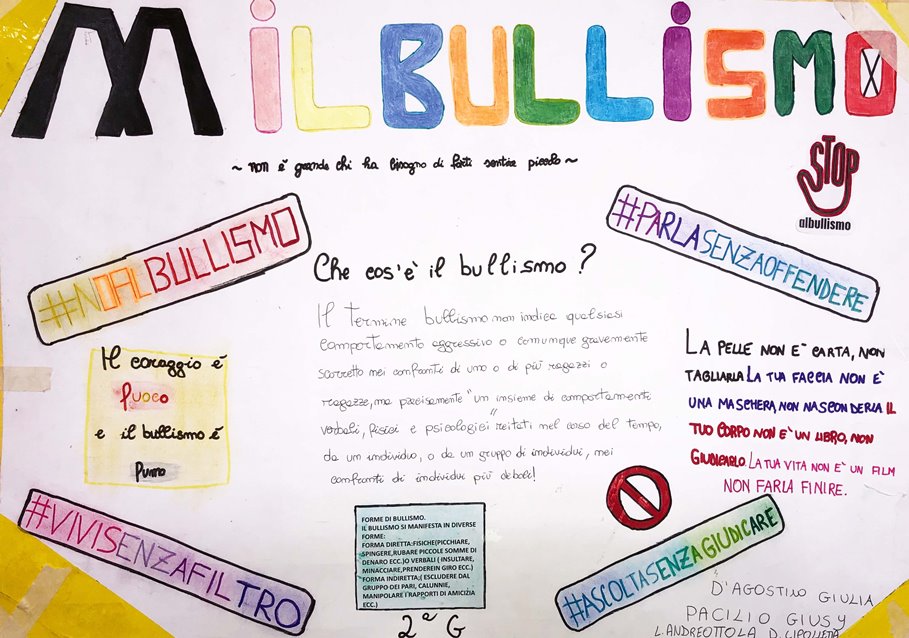 IL BULLISMO
~ non è grande chi ha bisogno di farti sentire piccolo ~
STOP
albullismo
#NOALBULLISMO
#PARLASENZAOFFENDERE
Che cos'è il bullismo?
Il termine bullismo non indica qualsiasi
comportamento aggressivo o comunque gravemente
scorretto nei confronti di uno o di più ragazzi o
ragazze, ma precisamente "un insieme di comportamenti
verbali, fisici e psicologici reitati nel corso del tempo,
da un individuo, o da un gruppo di individui, nei
confronti di individui più deboli!
Il coraggio è
fuoco
e il bullismo è
fumo
LA PELLE NON È CARTA, NON
TAGLIARLA LA TUA FACCIA NON È
UNA MASCHERA, NON NASCONDERLA IL
TUO CORPO NON È UN LIBRO, NON
GIUDICARLO. LA TUA VITA NON È UN FILM
NON FARLA FINIRE.
#VIVISENZAFILTRO
FORME DI BULLISMO.
IL BULLISMO SI MANIFESTA IN DIVERSE
FORME:
FORMA DIRETTA:FISICHE(PICCHIARE,
SPINGERE,RUBARE PICCOLE SOMME DI
DENARO ECC.)O VERBALI ( INSULTARE,
MINACCIARE,PRENDEREIN GIRO ECC.)
FORMA INDIRETTA:( ESCLUDERE DAL
GRUPPO DEI PARI, CALUNNIE,
MANIPOLARE I RAPPORTI DI AMICIZIA
ECC.)
#ASCOLTASENZAGIUDICARE
2ª G
D'AGOSTINO GIULIA
PACILIO GIUSY
L. ANDREOTTOLA D. CIPOLLETTA